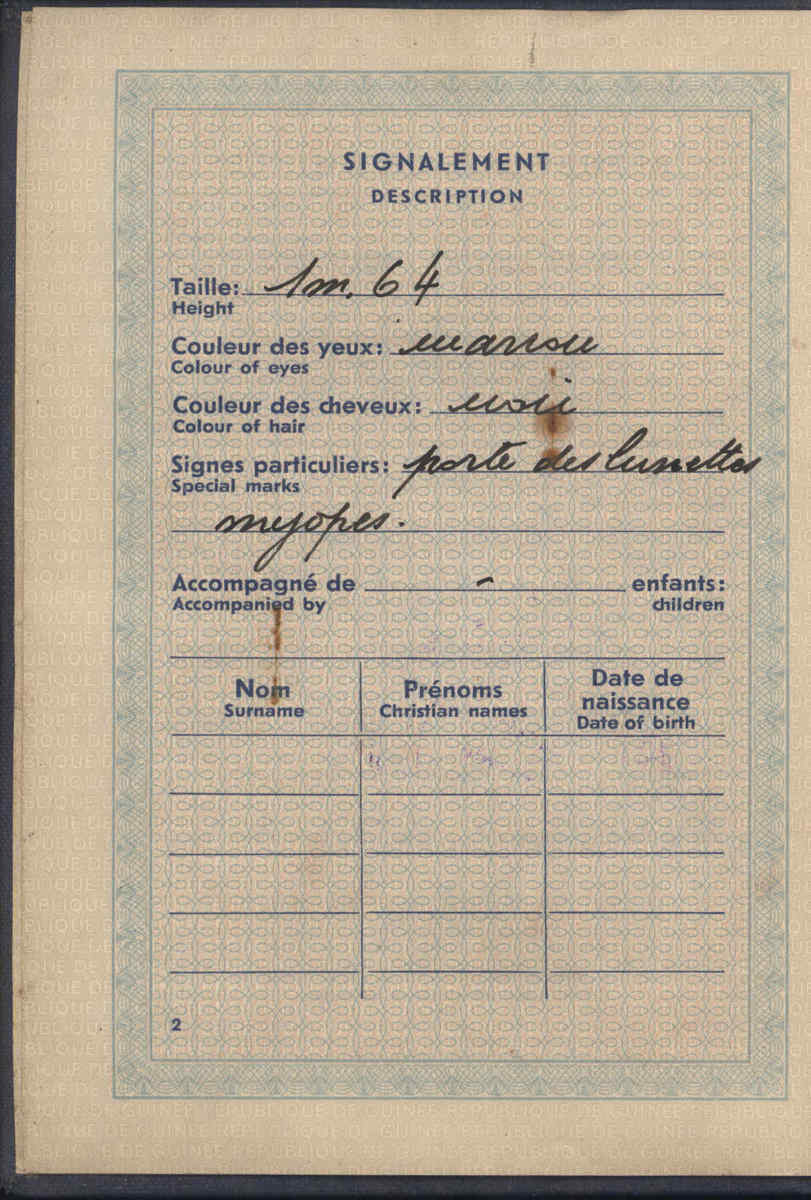 SIGNALEMENT
DESCRIPTION
Taille: 1m. 64
Height
Couleur des yeux: marron
Colour of eyes
Couleur des cheveux: noir
Colour of hair
Signes particuliers: porte des lunettes
Special marks
myopes.
Accompagné de - enfants:
Accompanied by children
Nom Prénoms Date de
naissance
Surname Christian names Date of birth
2